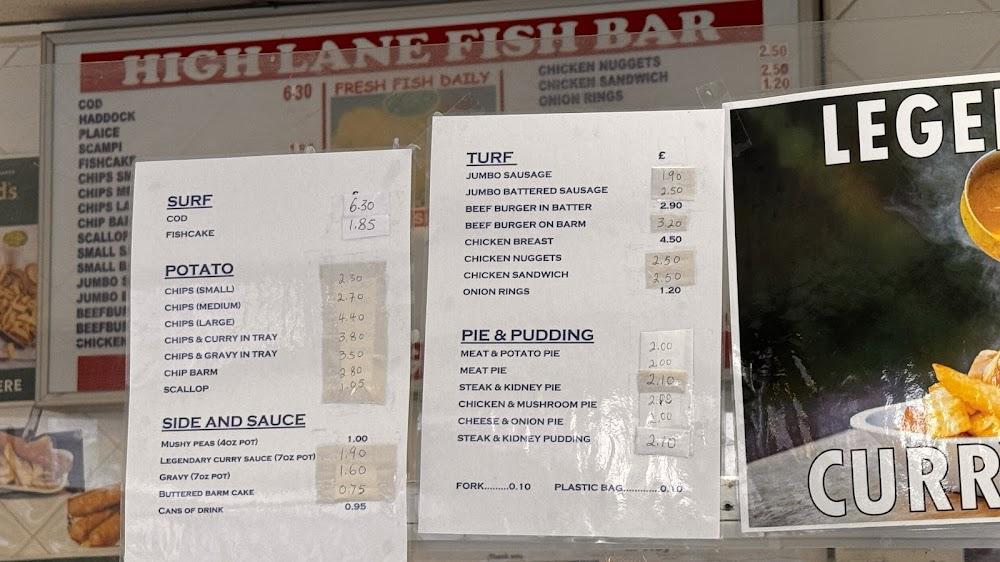 HIGH LANE FISH BAR
COD 6.30
HADDOCK
PLAICE
SCAMPI
FISHCAKE
CHIPS
CHIPS
CHIPS
CHIP
SCALLOP
SMALL
SMALL
JUMBO
JUMBO
CHICKEN
FRESH FISH DAILY
CHICKEN NUGGETS 2.50
CHICKEN SANDWICH 2.50
ONION RINGS 1.20
SURF
COD 6.30
FISHCAKE 1.85
POTATO
CHIPS (SMALL) 2.30
CHIPS (MEDIUM) 2.70
CHIPS (LARGE) 4.40
CHIPS & CURRY IN TRAY 3.80
CHIPS & GRAVY IN TRAY 3.50
CHIP BARM 2.80
SCALLOP 1.05
SIDE AND SAUCE
MUSHY PEAS (4OZ POT) 1.00
LEGENDARY CURRY SAUCE (7OZ POT) 1.90
GRAVY (7OZ POT) 1.60
BUTTERED BARM CAKE 0.75
CANS OF DRINK 0.95
TURF £
JUMBO SAUSAGE 1.90
JUMBO BATTERED SAUSAGE 2.50
BEEF BURGER IN BATTER 2.90
BEEF BURGER ON BARM 3.20
CHICKEN BREAST 4.50
CHICKEN NUGGETS 2.50
CHICKEN SANDWICH 2.50
ONION RINGS 1.20
PIE & PUDDING
MEAT & POTATO PIE 2.00
MEAT PIE 2.00
STEAK & KIDNEY PIE 2.10
CHICKEN & MUSHROOM PIE
CHEESE & ONION PIE 2.00
STEAK & KIDNEY PUDDING 2.70
FORK.........0.10 PLASTIC BAG.............0.10
LEGE
CURR